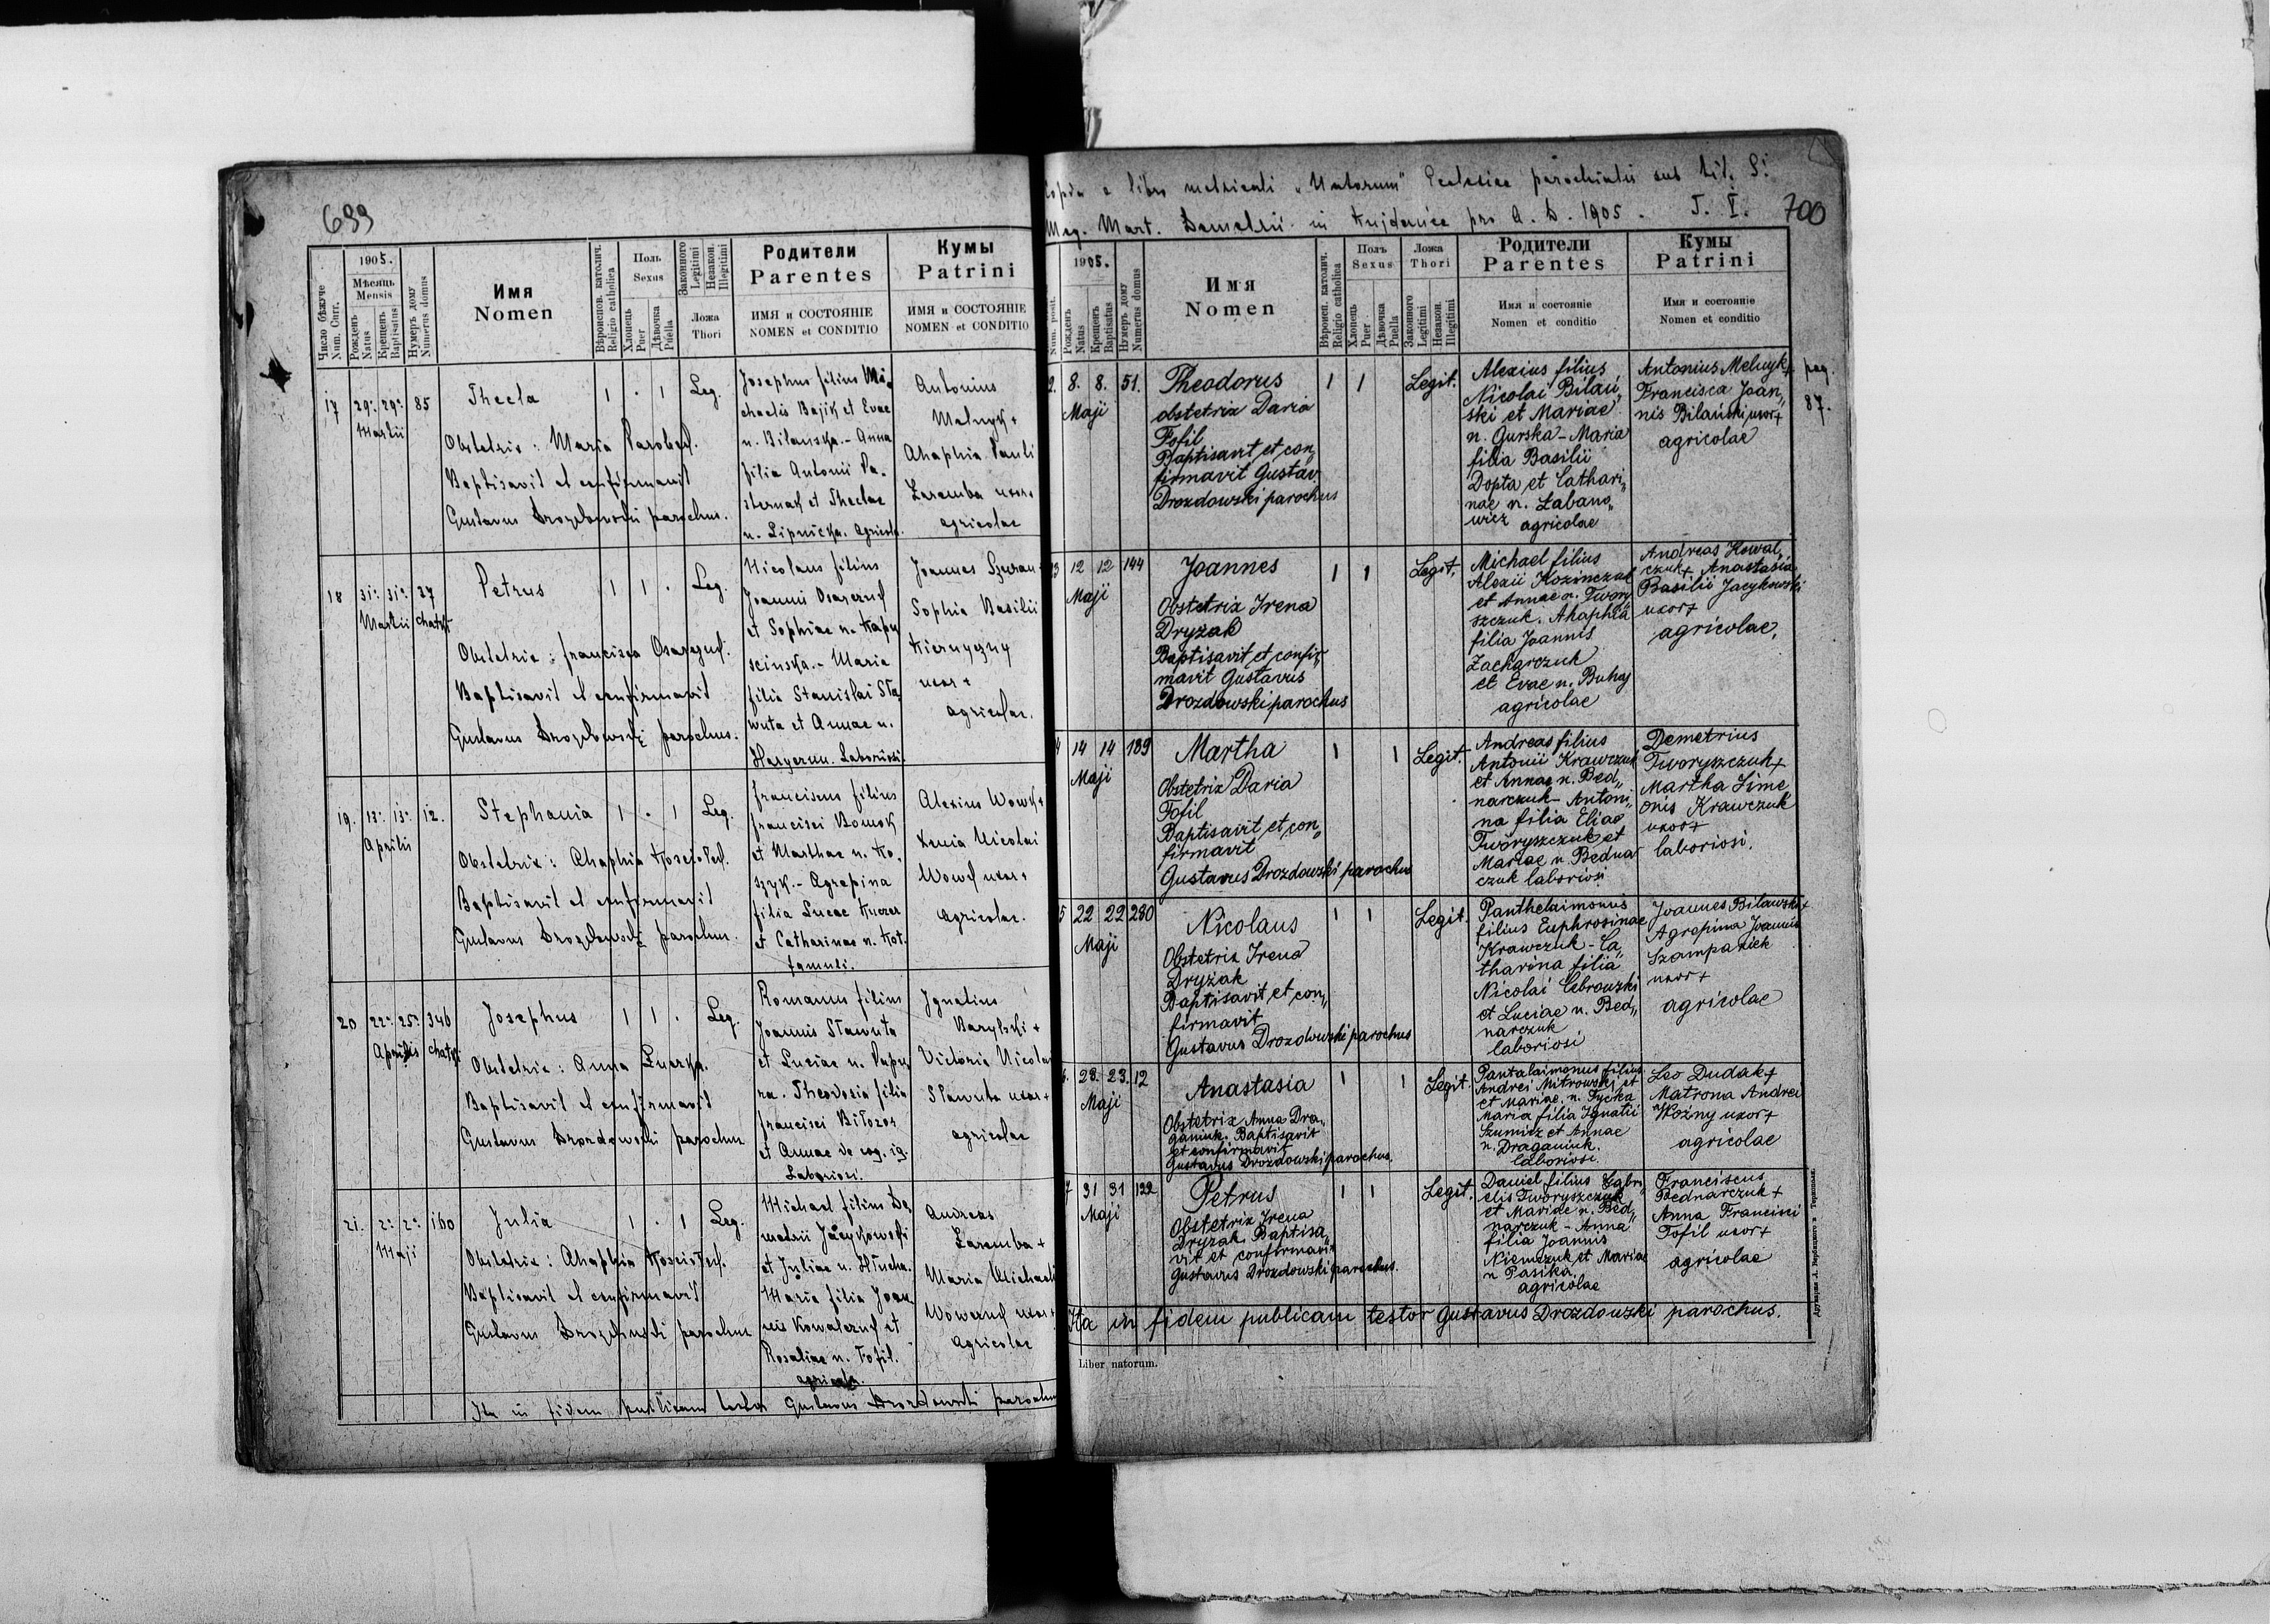 699
Число бѣжуче
Num. Curr.
1905.
Мѣсяць
Mensis
Рожденъ
Natus
Крещенъ
Baptisatus
Нумеръ дому
Numerus domus
Имя
Nomen
Вѣроиспов. католич.
Religio catholica
Полъ
Sexus
Хлопець
Puer
Дѣвочка
Puella
Законного
Legitimi
Незакон.
Illegitimi
Ложа
Thori
Родители
Parentes
ИМЯ и СОСТОЯНІЕ
NOMEN et CONDITIO
Кумы
Patrini
ИМЯ и СОСТОЯНІЕ
NOMEN et CONDITIO
17 29. 29. 85 Thecla 1 . 1 Leg.
Martii
Obstetrix: Maria Parobek.
Baptisavit et confirmavit
Gustavus Drozdowski parochus.
Josephus filius Mi-
chaelis Bajik et Evae
n. Bilanska.- Anna
filia Antonii Pa-
sternak et Theclae
n. Lipnicka. agricolae
Antonius
Melnyk +
Ahaphia Pauli
Zaremba uxor +
agricolae
18 31. 31. 37 Petrus 1 1 . Leg.
Martii
Obstetrix: Francisca
Baptisavit et confirmavit
Gustavus Drozdowski parochus.
Nicolaus filius
Joannis
et Sophiae n. Kapu
scinska.- Maria
filia Stanislai Sta
wuta et Annae n.
Laboriosi.
Joannes
Sophia Basilii
Kiernyczny
uxor +
agricolae.
19. 13. 13. 12. Stephania 1 . 1 Leg.
Aprilis
Obstetrix: Ahaphia
Baptisavit et confirmavit
Gustavus Drozdowski parochus.
Franciscus filius
Francisci
et Marthae n. Ko,
szyk.- Agrepina
filia Lucae Kuczer
et Catharinae n. Kot.
famuli.
Alexius Wowk +
Xenia Nicolai
Wowk uxor +
agricolae.
20 22. 25. 346 Josephus 1 1 . Leg.
Aprilis
Obstetrix: Anna
Baptisavit et confirmavit
Gustavus Drozdowski parochus
Romanus filius
Joannis Stawuta
et Luciae n.
Theodosia filia
Francisci Bitozor
et Annae de cog. ig.
Laboriosi.
Ignatius
Barylski +
Victoria Nicolai
Stawuta uxor +
agricolae
21. 2. 2. 160 Julia 1 . 1 Leg.
Maji
Obstetrix: Ahaphia
Baptisavit et confirmavit
Gustavus Drozdowski parochus
Michael filius De
metrii Jacykowski
et Juliae n. Hlucha.
Maria filia Joan
nis Kowalczuk et
Rosaliae n. Tofil.
agricolae.
Andreas
Zaremba +
Maria Michaelis
uxor +
agricolae
Ita in fidem publicam testor Gustavus Drozdowski parochus
Copia e libro metricali „Natorum" Ecclesiae parochialis sub tit. S.
Mag. Mart. Demetrii in pro A. D. 1905. T. I. 700
1905.
Рожденъ
Natus
Крещенъ
Baptisatus
Нумеръ дому
Numerus domus
Имя
Nomen
Вѣроисп. католич.
Religio catholica
Полъ
Sexus
Хлопець
Puer
Дѣвочка
Puella
Ложа
Thori
Законного
Legitimi
Незакон.
Illegitimi
Родители
Parentes
Имя и состояніе
Nomen et conditio
Кумы
Patrini
Имя и состояніе
Nomen et conditio
2. 8. 8. 51. Theodorus 1 1 Legit.
Maji
obstetrix Daria
Tofil
Baptisavit et con„
firmavit Gustav
Drozdowski parochus
Alexius filius
Nicolai Bilań„
ski et Mariae
n. Gurska - Maria
filia Basilii
Dopta et Cathari„
nae n. Labano„
wicz agricolae
Antonius Melnyk +
Francisca Joan„
nis Bilański uxor +
agricolae
pag.
87.
3 12 12 144 Joannes 1 1 Legit.
Maji
Obstetrix Irena
Dryżak
Baptisavit et confir„
mavit Gustavus
Drozdowski parochus
Michael filius
Alexii Kozinczuk
et Annae n. Twory
szczuk. Ahaphia
filia Joannis
Zacharczuk
et Evae n. Buhaj
agricolae
Andreas Kowal„
czuk + Anastasia
Basilii Jacykowski
uxor +
agricolae.
4 14 14 189 Martha 1 1 Legit.
Maji
Obstetrix Daria
Tofil
Baptisavit et con„
firmavit
Gustavus Drozdowski parochus
Andreas filius
Antonii Krawczuk
et Annae n. Bed„
narczuk - Antoni„
na filia Eliae
Tworyszczuk et
Mariae n. Bednar
czuk laboriosi
Demetrius
Tworyszczuk +
Martha Sime„
onis Krawczuk
uxor +
laboriosi.
5 22 22 280 Nicolaus 1 1 Legit.
Maji
Obstetrix Irena
Dryżak
Baptisavit et con„
firmavit
Gustavus Drozdowski parochus
Panthelaimonus
filius Euphrosinae
Krawczuk - Ca„
tharina filia
Nicolai Cebrowski
et Luciae n. Bed„
narczuk
laboriosi
Joannes Bilawski +
Agrepina Joannis
Szampanick
uxor +
agricolae
6. 23. 23. 12 Anastasia 1 1 Legit.
Maji
Obstetrix Anna Dra„
ganiuk. Baptisavit
et confirmavit
Gustavus Drozdowski parochus.
Pantalaimonus filius
Andrei Mitrowski et
et Mariae n. Tycka
Maria filia Ignatii
Szumisz et Annae
n. Draganiuk.
laboriosi
Leo Dudak +
Matrona Andrei
Woźny uxor +
agricolae
7 31 31 122 Petrus 1 1 Legit.
Maji
Obstetrix Irena
Dryżak. Baptisa„
vit et confirmavit
Gustavus Drozdowski parochus.
Daniel filius Gabri„
elis Tworyszczuk
et Mariae n. Bed„
narczuk - Anna
filia Joannis
Niemczuk et Mariae
n Pasika.
agricolae
Franciscus
Bednarczuk +
Anna Francisci
Tofil uxor +
agricolae
Ita in fidem publicam testor Gustavus Drozdowski parochus.
Liber natorum.